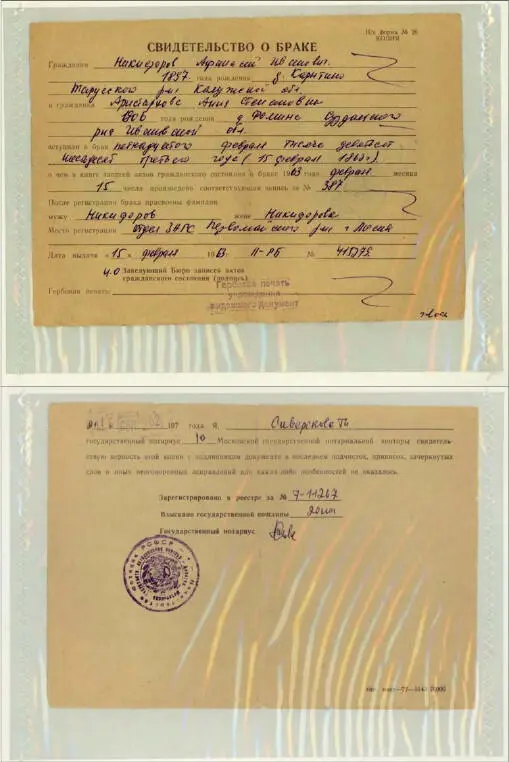 Н/к форма № 26
КОПИЯ
СВИДЕТЕЛЬСТВО О БРАКЕ
Гражданин Никифоров Афанасий Иванович
1897 года рождения д. Карпино
Тарусского р-на Калужской обл.
и гражданка Анна Степановна
1906 года рождения д. Фомино
р-на Ивановской обл.
вступили в брак пятнадцатого февраля тысяча девятьсот
шестьдесят третьего года (15 февраля 1963 г.)
о чем в книге записей актов гражданского состояния о браке 1963 года февраля месяца
15 числа произведена соответствующая запись за № 387
После регистрации брака присвоены фамилии
мужу Никифоров жене Никифорова
Место регистрации отдел ЗАГС Первомайского р-на г. Москва
Дата выдачи «15» февраля 1963 II-РБ № 415279
Заведующий Бюро записей актов
гражданского состояния (подпись)
Гербовая печать
Гербовая печать
учреждения
выдавшего документ
197 года Я,
государственный нотариус 10 Московской государственной нотариальной конторы свидетель-
ствую верность этой копии с подлинником документа в последнем подчисток, приписок, зачеркнутых
слов и иных неоговоренных исправлений или каких-либо особенностей не оказалось.
Зарегистрировано в реестре за № 7-11267
Взыскано государственной пошлины
Государственный нотариус
РСФСР